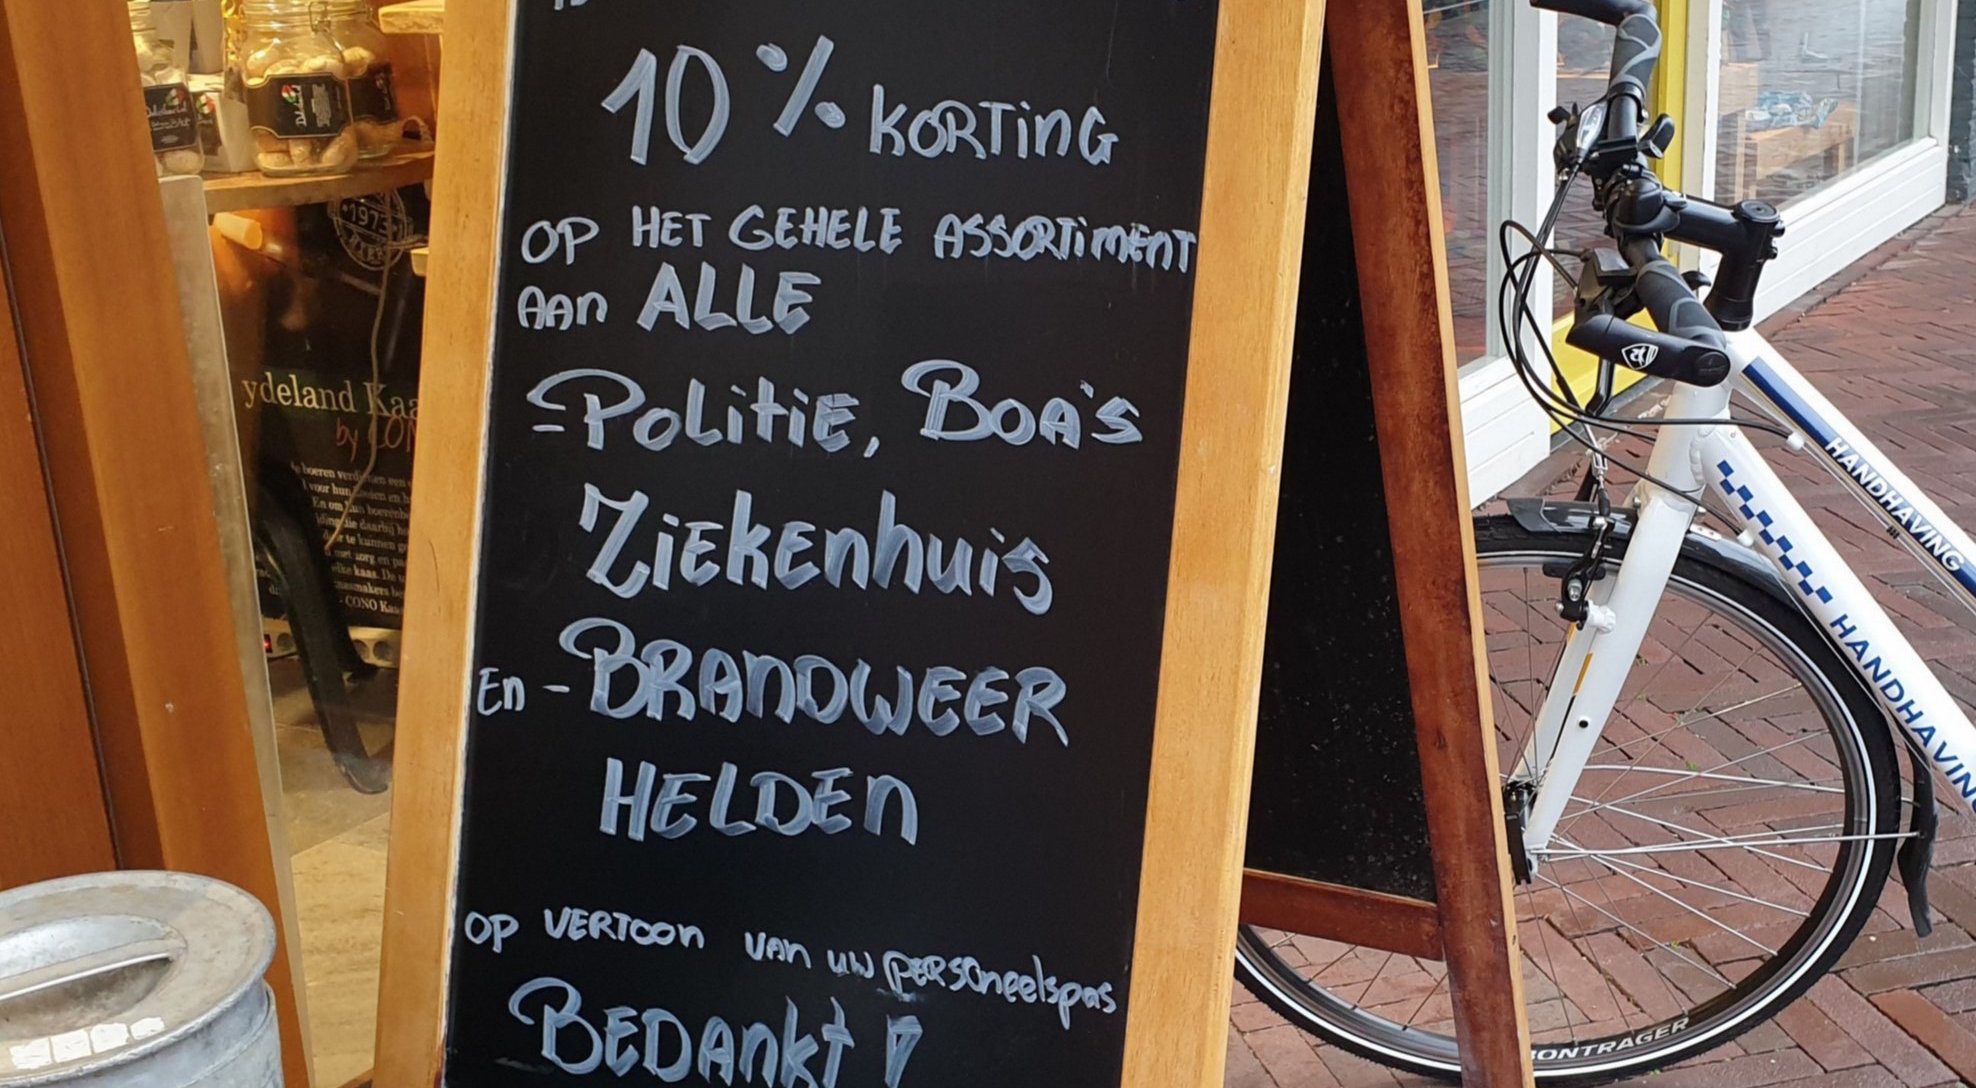 10% KORTING
OP HET GEHELE ASSORTIMENT
AAN ALLE
- POLITIE, BOA'S
ZIEKENHUIS
En - BRANDWEER
HELDEN
OP VERTOON VAN UW PERSONEELSPAS
BEDANKT!
1973
ydeland Kaa
by CON
- CONO Kaa
HANDHAVING
HANDHAVING
BONTRAGER